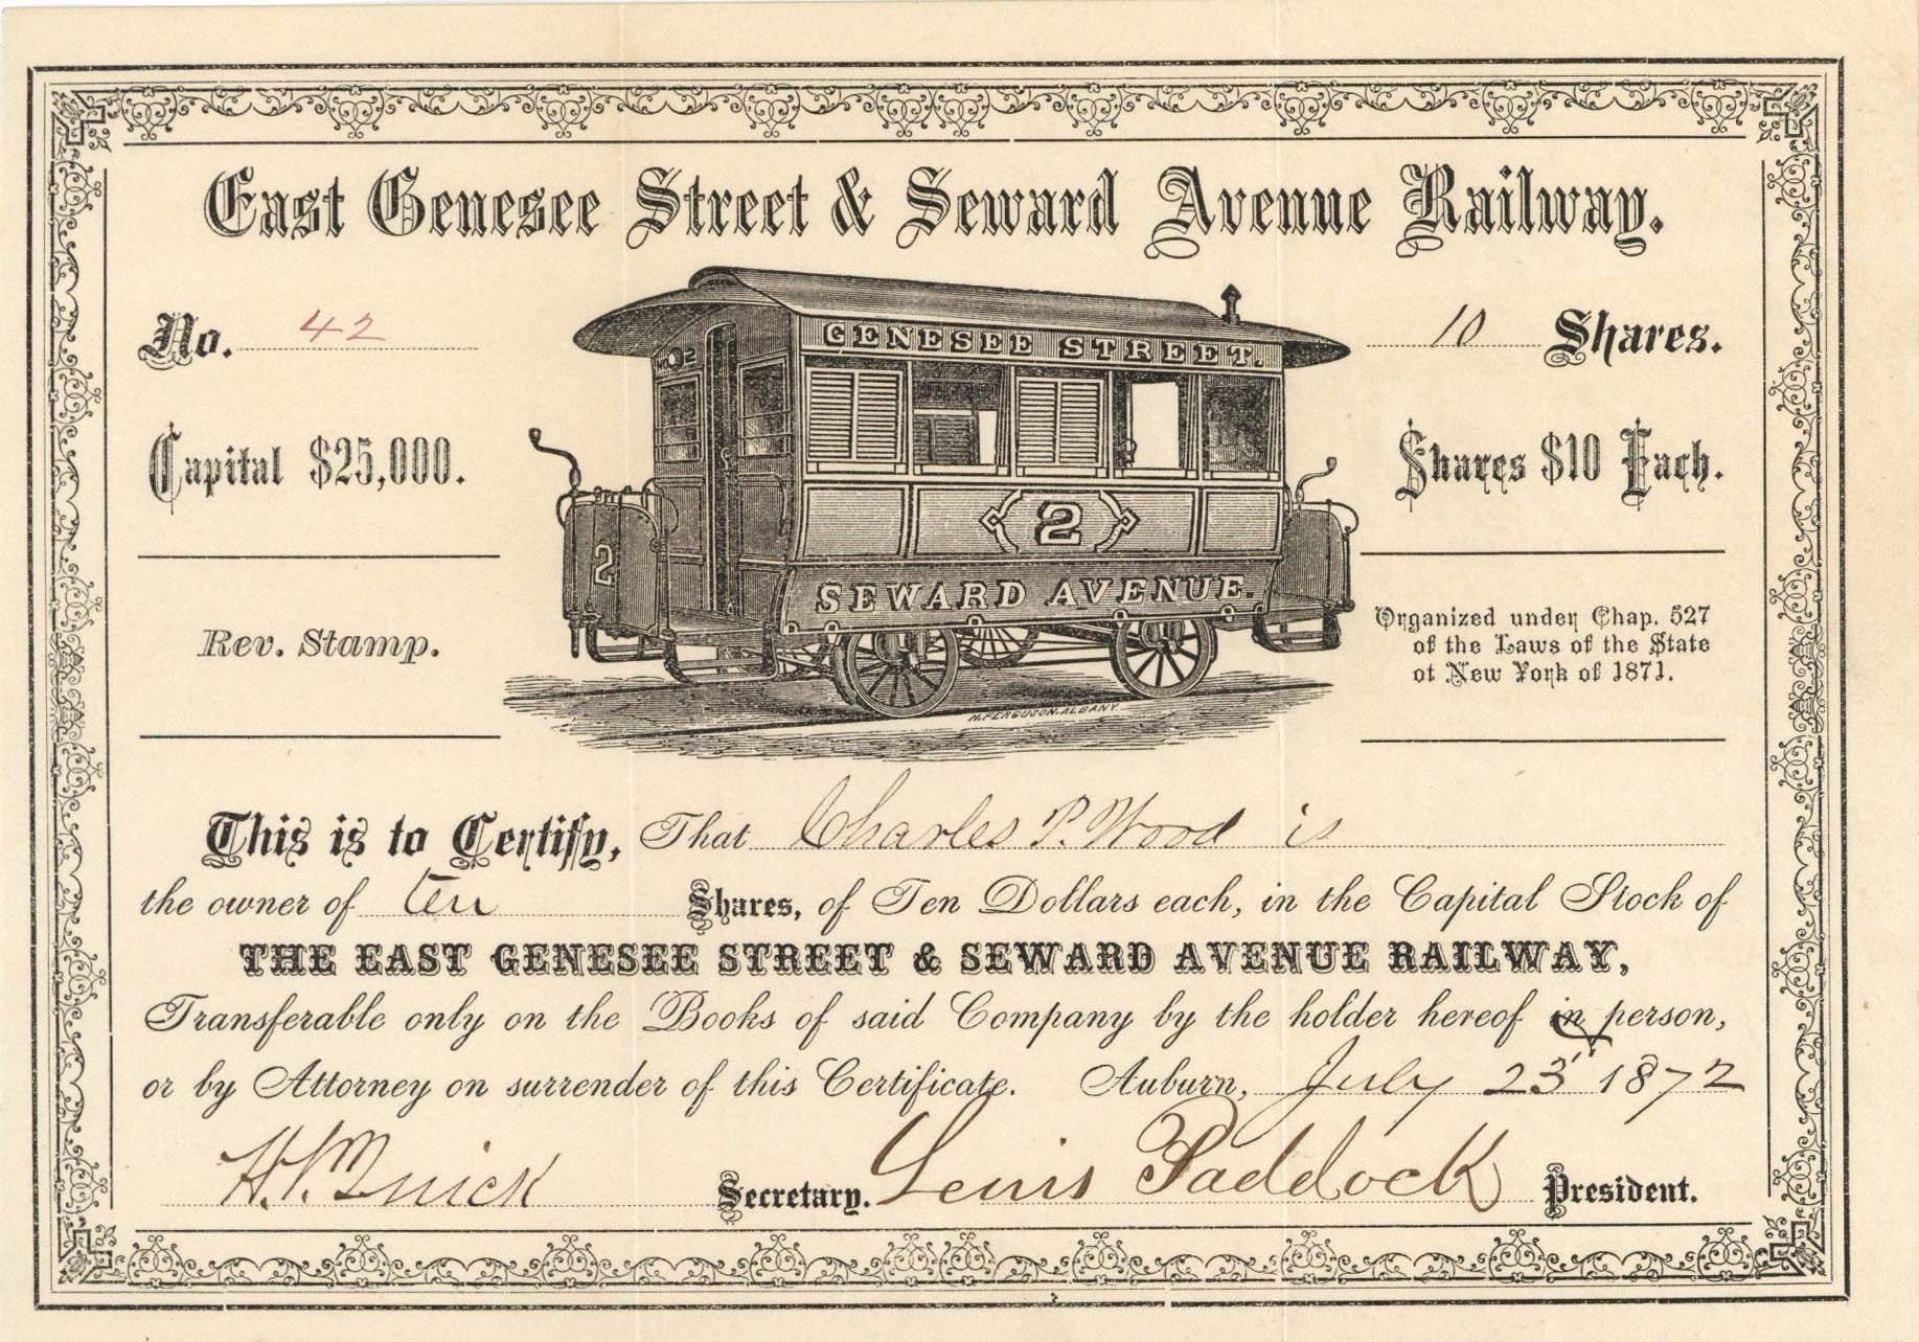 East Genesee Street & Seward Avenue Railway.
No. 42
10 Shares.
Capital $25,000.
Shares $10 Each.
GENESEE STREET.
No 2
2
2
SEWARD AVENUE.
Rev. Stamp.
Organized under Chap. 527
of the Laws of the State
of New York of 1871.
H. FERGUSON. ALBANY.
This is to Certify, That Charles P. Wood is
the owner of ten Shares, of Ten Dollars each, in the Capital Stock of
THE EAST GENESEE STREET & SEWARD AVENUE RAILWAY,
Transferable only on the Books of said Company by the holder hereof in person,
or by Attorney on surrender of this Certificate. Auburn, July 23" 1872
Quick Secretary. Lewis Paddock President.